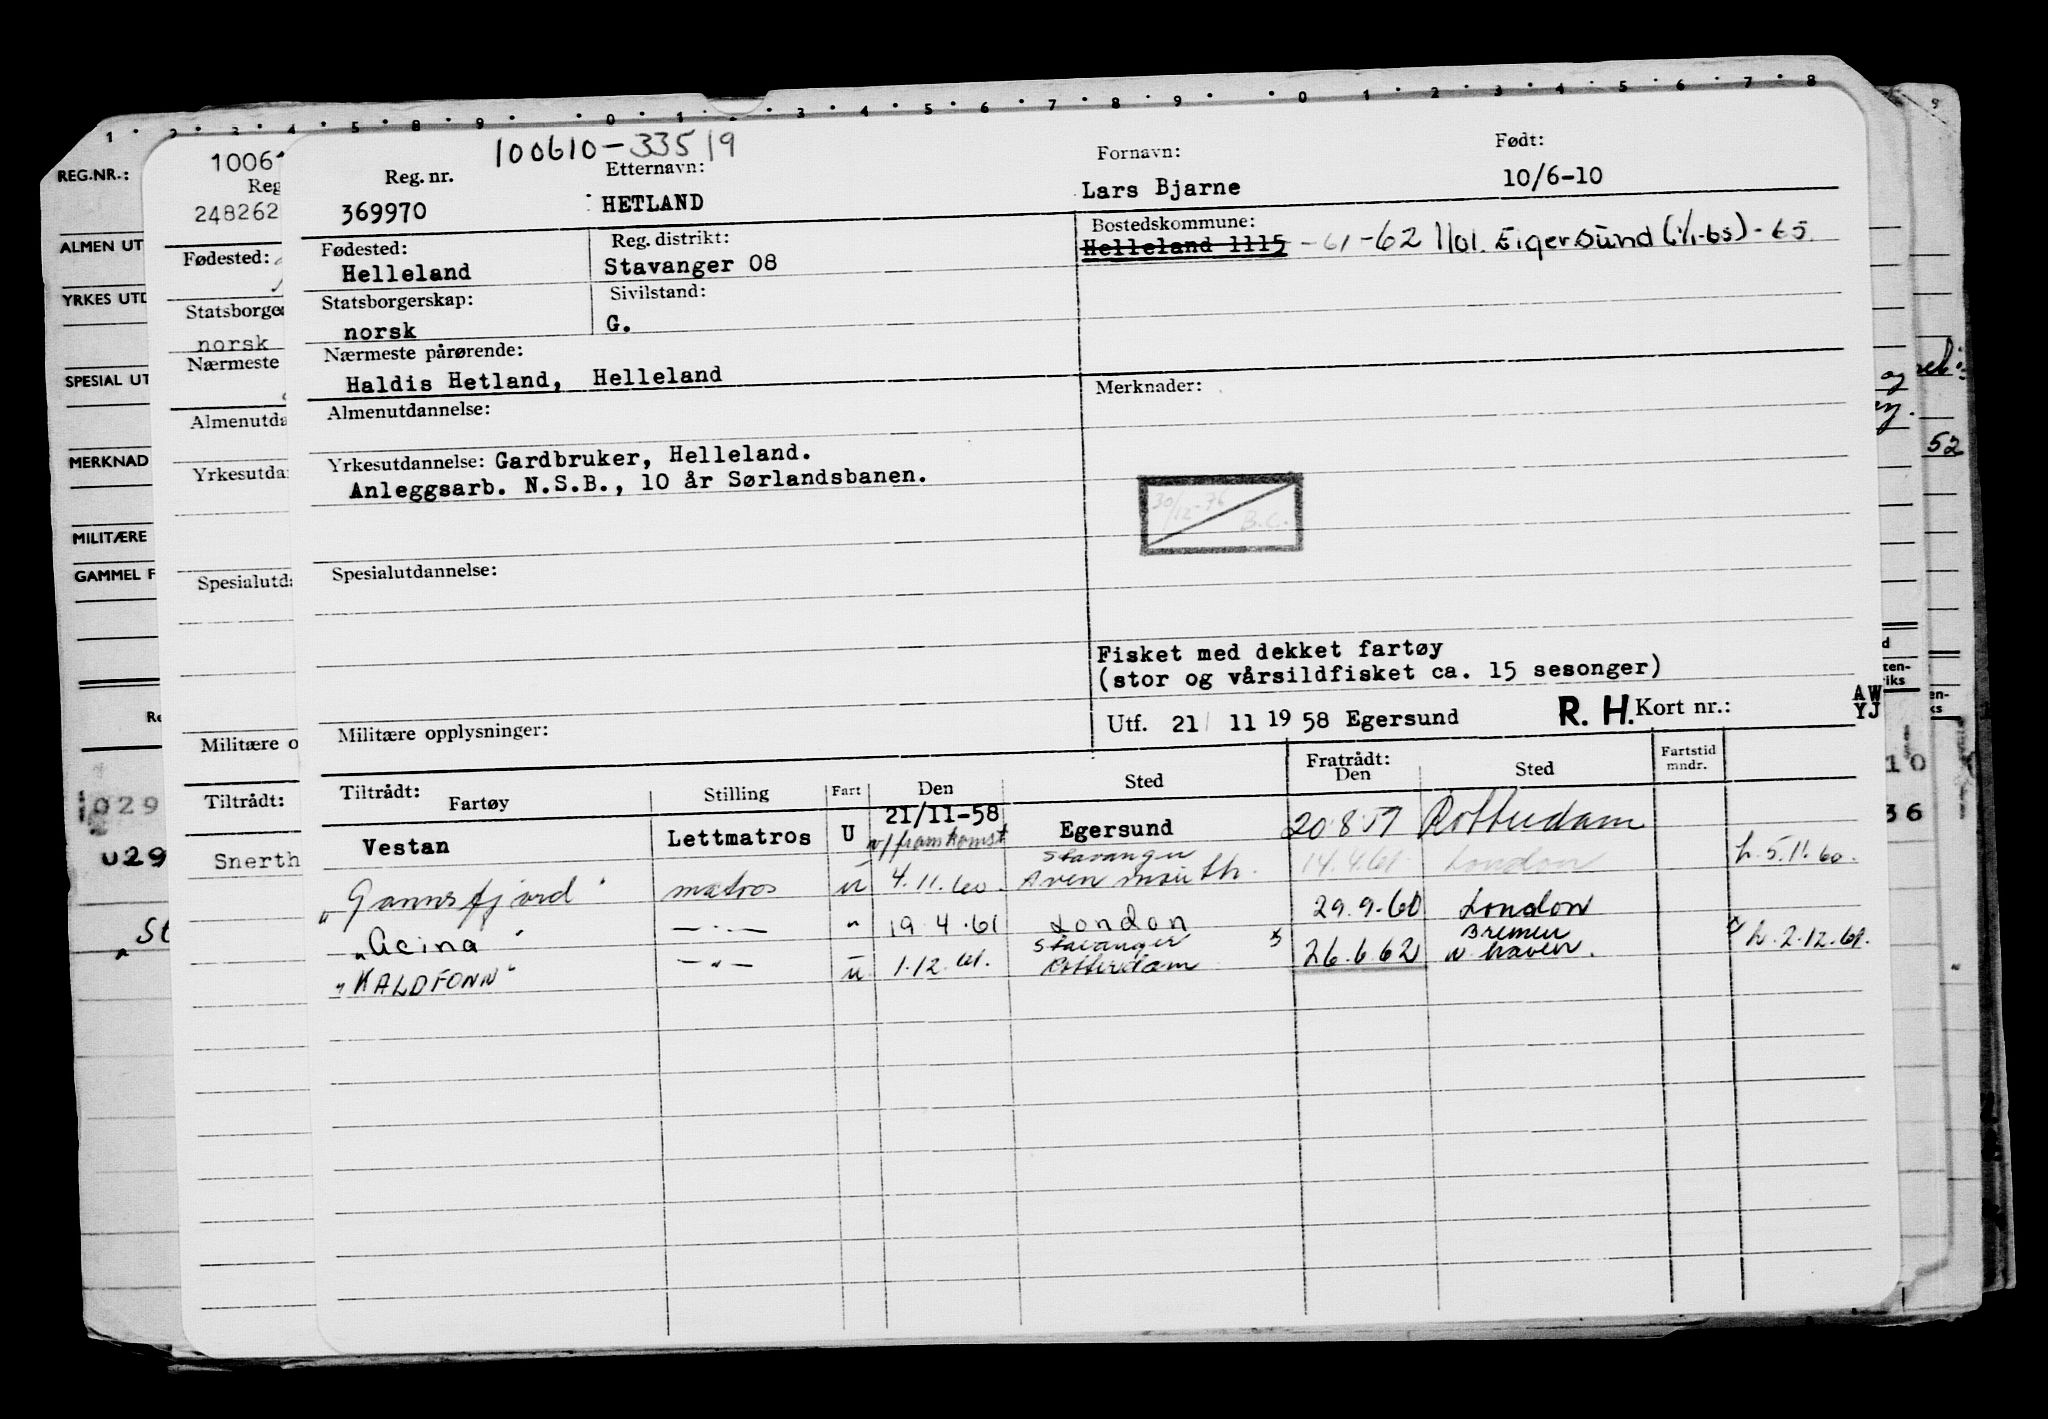 1 2 3 4 5 8 9 0 1 2 3 4 5 6 7 8 9 0 1 2 3 4 5 6 7 8 9
100610-33519
REG.NR.:
1006
Reg. nr. Etternavn: Fornavn: Født:
248262
369970 HETLAND Lars Bjarne 10/6-10
ALMEN UT
Fødested:
Fødested: Reg. distrikt: Bostedskommune:
Helleland Stavanger 08 Helleland 1115 -61-62 1101. Eigersund (1/1-65) - 65.
YRKES UTD
Statsborge
norsk
Statsborgerskap: Sivilstand:
norsk G.
Nærmeste
Nærmeste pårørende:
Haldis Hetland, Helleland
SPESIAL UT
Almenutda
Almenutdannelse: Merknader:
og
MERKNAD
Yrkesutda
Yrkesutdannelse: Gardbruker, Helleland.
Anleggsarb. N.S.B., 10 år Sørlandsbanen.
52
30/12-76 B.C.
MILITÆRE
GAMMEL F
Spesialutd
Spesialutdannelse:
Fisket med dekket fartøy
(stor og vårsildfisket ca. 15 sesonger)
Militære o
Militære opplysninger: Utf. 21/ 11 19 58 Egersund R. H. Kort nr.: AW
YJ
Tiltrådt:
Tiltrådt: Fratrådt:
Fartøy Stilling Fart Den Sted Den Sted Fartstid mndr.
029
029
10
36
Snerth
St
Vestan Lettmatros U 21/11-58 Egersund 20.8.59 Rotterdam
v/framkomst Stavanger
"Gannsfjord" matros u 4.11.60. Avenmouth. 14.4.61. London h. 5.11.60.
"Acina" —"— " 19.4.61 London 29.9.60 London
"KALDFONN" —"— u 1.12.61. Stavanger Rotterdam 26.6.62 Bremen haven. h. 2.12.61.